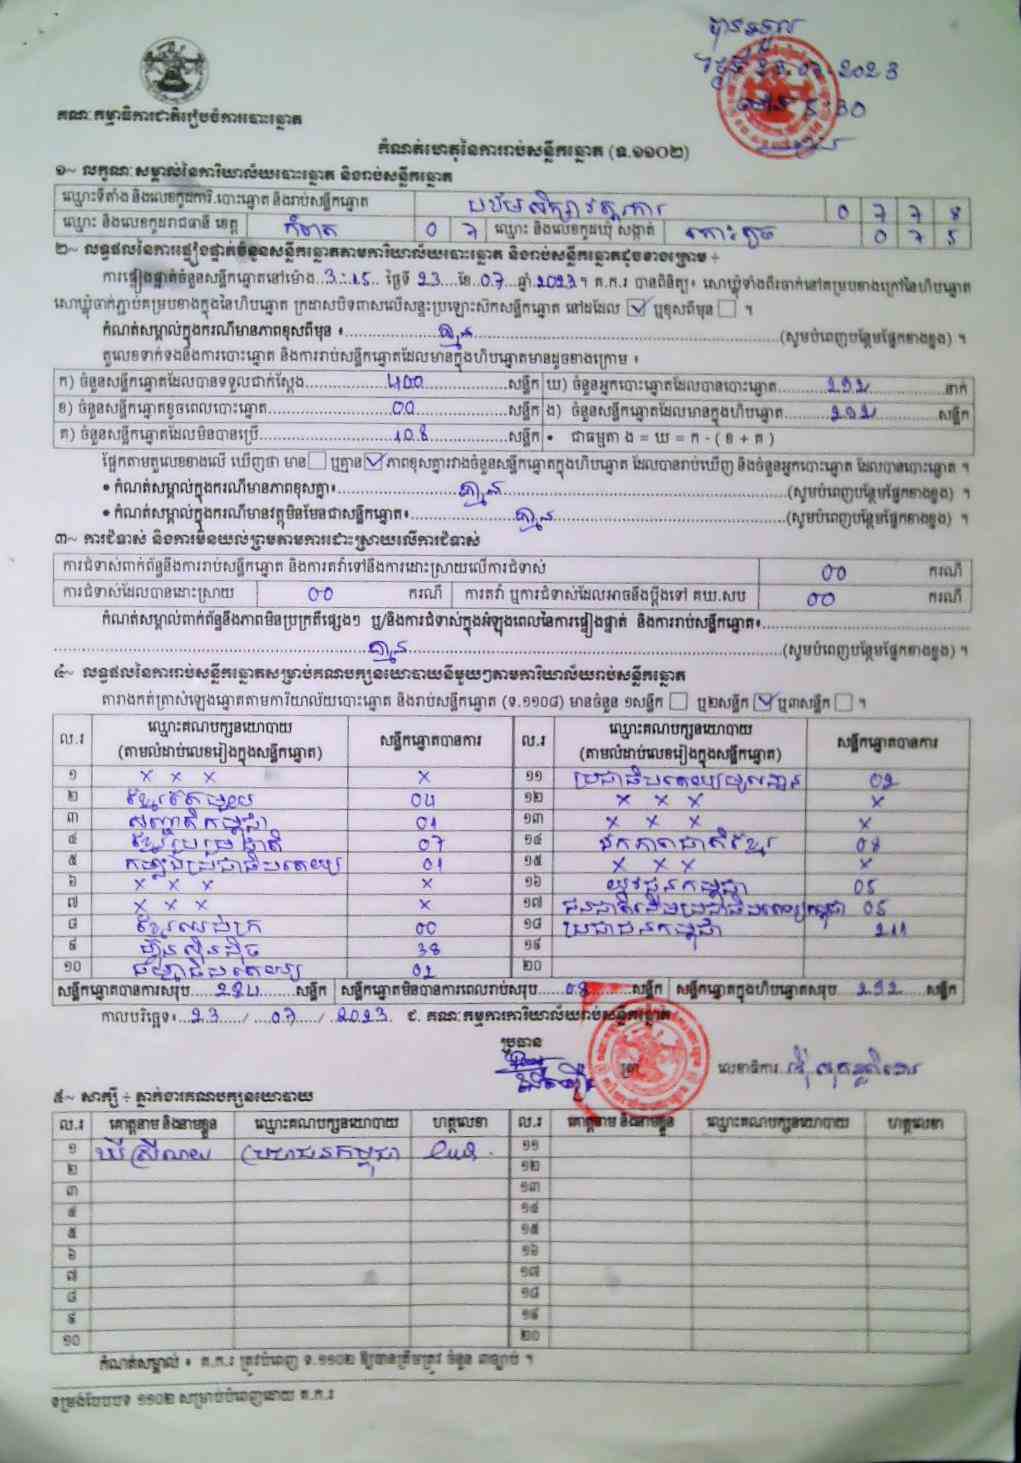 បានទទួល
ថ្ងៃទី 23.07.2023
ម៉ោង 5:30
គណៈកម្មាធិការជាតិរៀបចំការបោះឆ្នោត
កំណត់ហេតុនៃការរាប់សន្លឹកឆ្នោត (ទ.១១០២)
១~ លក្ខណៈសម្គាល់នៃការិយាល័យបោះឆ្នោត និងរាប់សន្លឹកឆ្នោត
ឈ្មោះទីតាំង និងលេខកូដការិ.បោះឆ្នោត និងរាប់សន្លឹកឆ្នោត 0 7 7 8
ឈ្មោះ និងលេខកូដរាជធានី ខេត្ត កំពត 0 7 ឈ្មោះ និងលេខកូដឃុំ សង្កាត់ កោះតូច 0 7 5
២~ លទ្ធផលនៃការផ្ទៀងផ្ទាត់ចំនួនសន្លឹកឆ្នោតតាមការិយាល័យបោះឆ្នោត និងរាប់សន្លឹកឆ្នោតដូចខាងក្រោម ៖
ការផ្ទៀងផ្ទាត់ចំនួនសន្លឹកឆ្នោតនៅម៉ោង.3:15.. ថ្ងៃទី 23....ខែ.07...ឆ្នាំ.2023។ គ.ក.រ បានពិនិត្យ៖ សោឃ្លុំទាំងពីរចាក់នៅគម្របខាងក្រៅនៃហិបឆ្នោត
សោឃ្លុំចាក់ភ្ជាប់គម្របខាងក្នុងនៃហិបឆ្នោត ក្រដាសបិទពាសលើសន្ទះប្រឡោះសៀតសន្លឹកឆ្នោត នៅដដែល ☑ ឬខុសពីមុន ☐ ។
កំណត់សម្គាល់ក្នុងករណីមានភាពខុសពីមុន ៖ គ្មាន (សូមបំពេញបន្ថែមផ្នែកខាងខ្នង) ។
តួលេខទាក់ទងនឹងការបោះឆ្នោត និងការរាប់សន្លឹកឆ្នោតដែលមានក្នុងហិបឆ្នោតមានដូចខាងក្រោម ៖
ក) ចំនួនសន្លឹកឆ្នោតដែលបានទទួលជាក់ស្តែង 400 សន្លឹក ឃ) ចំនួនអ្នកបោះឆ្នោតដែលបានបោះឆ្នោត 292 នាក់
ខ) ចំនួនសន្លឹកឆ្នោតខូចពេលបោះឆ្នោត 00 សន្លឹក ង) ចំនួនសន្លឹកឆ្នោតដែលមានក្នុងហិបឆ្នោត 292 សន្លឹក
គ) ចំនួនសន្លឹកឆ្នោតដែលមិនបានប្រើ 108 សន្លឹក • ជាធម្មតា ង = ឃ = ក - ( ខ + គ )
ផ្អែកតាមតួលេខខាងលើ ឃើញថា មាន ☐ ឬគ្មាន ☑ ភាពខុសគ្នារវាងចំនួនសន្លឹកឆ្នោតក្នុងហិបឆ្នោត ដែលបានរាប់ឃើញ និងចំនួនអ្នកបោះឆ្នោត ដែលបានបោះឆ្នោត ។
• កំណត់សម្គាល់ក្នុងករណីមានភាពខុសគ្នា៖ គ្មាន (សូមបំពេញបន្ថែមផ្នែកខាងខ្នង) ។
• កំណត់សម្គាល់ក្នុងករណីមានវត្ថុមិនមែនជាសន្លឹកឆ្នោត៖ គ្មាន (សូមបំពេញបន្ថែមផ្នែកខាងខ្នង) ។
៣~ ការជំទាស់ និងការមិនយល់ព្រមតាមការដោះស្រាយលើការជំទាស់
ការជំទាស់ពាក់ព័ន្ធនឹងការរាប់សន្លឹកឆ្នោត និងការតវ៉ាទៅនឹងការដោះស្រាយលើការជំទាស់ 00 ករណី
ការជំទាស់ដែលបានដោះស្រាយ 00 ករណី ការតវ៉ា ឬការជំទាស់ដែលអាចនឹងប្តឹងទៅ គឃ.សប 00 ករណី
កំណត់សម្គាល់ពាក់ព័ន្ធនឹងភាពមិនប្រក្រតីផ្សេងៗ ឬ/និងការជំទាស់ក្នុងអំឡុងពេលនៃការផ្ទៀងផ្ទាត់ និងការរាប់សន្លឹកឆ្នោត៖
គ្មាន (សូមបំពេញបន្ថែមផ្នែកខាងខ្នង) ។
៤~ លទ្ធផលនៃការរាប់សន្លឹកឆ្នោតសម្រាប់គណបក្សនយោបាយនីមួយៗតាមការិយាល័យរាប់សន្លឹកឆ្នោត
តារាងកត់ត្រាសំឡេងឆ្នោតតាមការិយាល័យបោះឆ្នោត និងរាប់សន្លឹកឆ្នោត (ទ.១១០៨) មានចំនួន ១សន្លឹក ☐ ឬ២សន្លឹក ☑ ឬ៣សន្លឹក ☐ ។
ល.រ ឈ្មោះគណបក្សនយោបាយ (តាមលំដាប់លេខរៀងក្នុងសន្លឹកឆ្នោត) សន្លឹកឆ្នោតបានការ ល.រ ឈ្មោះគណបក្សនយោបាយ (តាមលំដាប់លេខរៀងក្នុងសន្លឹកឆ្នោត) សន្លឹកឆ្នោតបានការ
១ x x x x ១១ ប្រជាធិបតេយ្យមូលដ្ឋាន 02
២ ខ្មែរតែមួយ 04 ១២ x x x x
៣ សញ្ជាតិកម្ពុជា 01 ១៣ x x x x
៤ ខ្មែររួបរួមជាតិ 07 ១៤ ឯកភាពជាតិខ្មែរ 08
៥ កម្លាំងប្រជាធិបតេយ្យ 01 ១៥ x x x x
៦ x x x x ១៦ យុវជនកម្ពុជា 05
៧ x x x x ១៧ ជនជាតិដើមប្រជាធិបតេយ្យកម្ពុជា 05
៨ ខ្មែរឈប់ក្រ 00 ១៨ ប្រជាជនកម្ពុជា 211
៩ ហ៊្វុនស៊ិនប៉ិច 38 ១៩
១០ ធម្មាធិបតេយ្យ 02 ២០
សន្លឹកឆ្នោតបានការសរុប 284 សន្លឹក សន្លឹកឆ្នោតមិនបានការពេលរាប់សរុប 08 សន្លឹក សន្លឹកឆ្នោតក្នុងហិបឆ្នោតសរុប 292 សន្លឹក
កាលបរិច្ឆេទ៖ 23 / 07 / 2023 ជ. គណៈកម្មការការិយាល័យរាប់សន្លឹកឆ្នោត
ប្រធាន
លេខាធិការ
៥~ សាក្សី ៖ ភ្នាក់ងារគណបក្សនយោបាយ
ល.រ គោត្តនាម និងនាមខ្លួន ឈ្មោះគណបក្សនយោបាយ ហត្ថលេខា ល.រ គោត្តនាម និងនាមខ្លួន ឈ្មោះគណបក្សនយោបាយ ហត្ថលេខា
១ ប្រជាជនកម្ពុជា ១១
២ ១២
៣ ១៣
៤ ១៤
៥ ១៥
៦ ១៦
៧ ១៧
៨ ១៨
៩ ១៩
១០ ២០
កំណត់សម្គាល់ ៖ គ.ក.រ ត្រូវបំពេញ ទ.១១០២ ឱ្យបានត្រឹមត្រូវ ចំនួន ៣ច្បាប់ ។
ទម្រង់បែបបទ ១១០២ សម្រាប់បំពេញដោយ គ.ក.រ